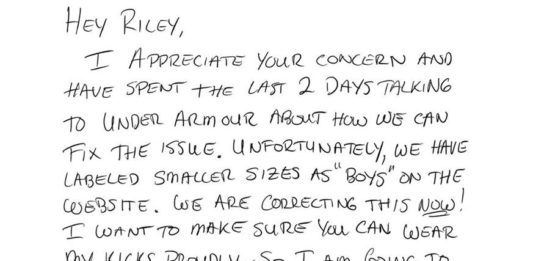 HEY RILEY,
I APPRECIATE YOUR CONCERN AND
HAVE SPENT THE LAST 2 DAYS TALKING
TO UNDER ARMOUR ABOUT HOW WE CAN
FIX THE ISSUE. UNFORTUNATELY, WE HAVE
LABELED SMALLER SIZES AS "BOYS" ON THE
WEBSITE. WE ARE CORRECTING THIS NOW!
I WANT TO MAKE SURE YOU CAN WEAR
MY KICKS PROUDLY. SO I AM GOING TO